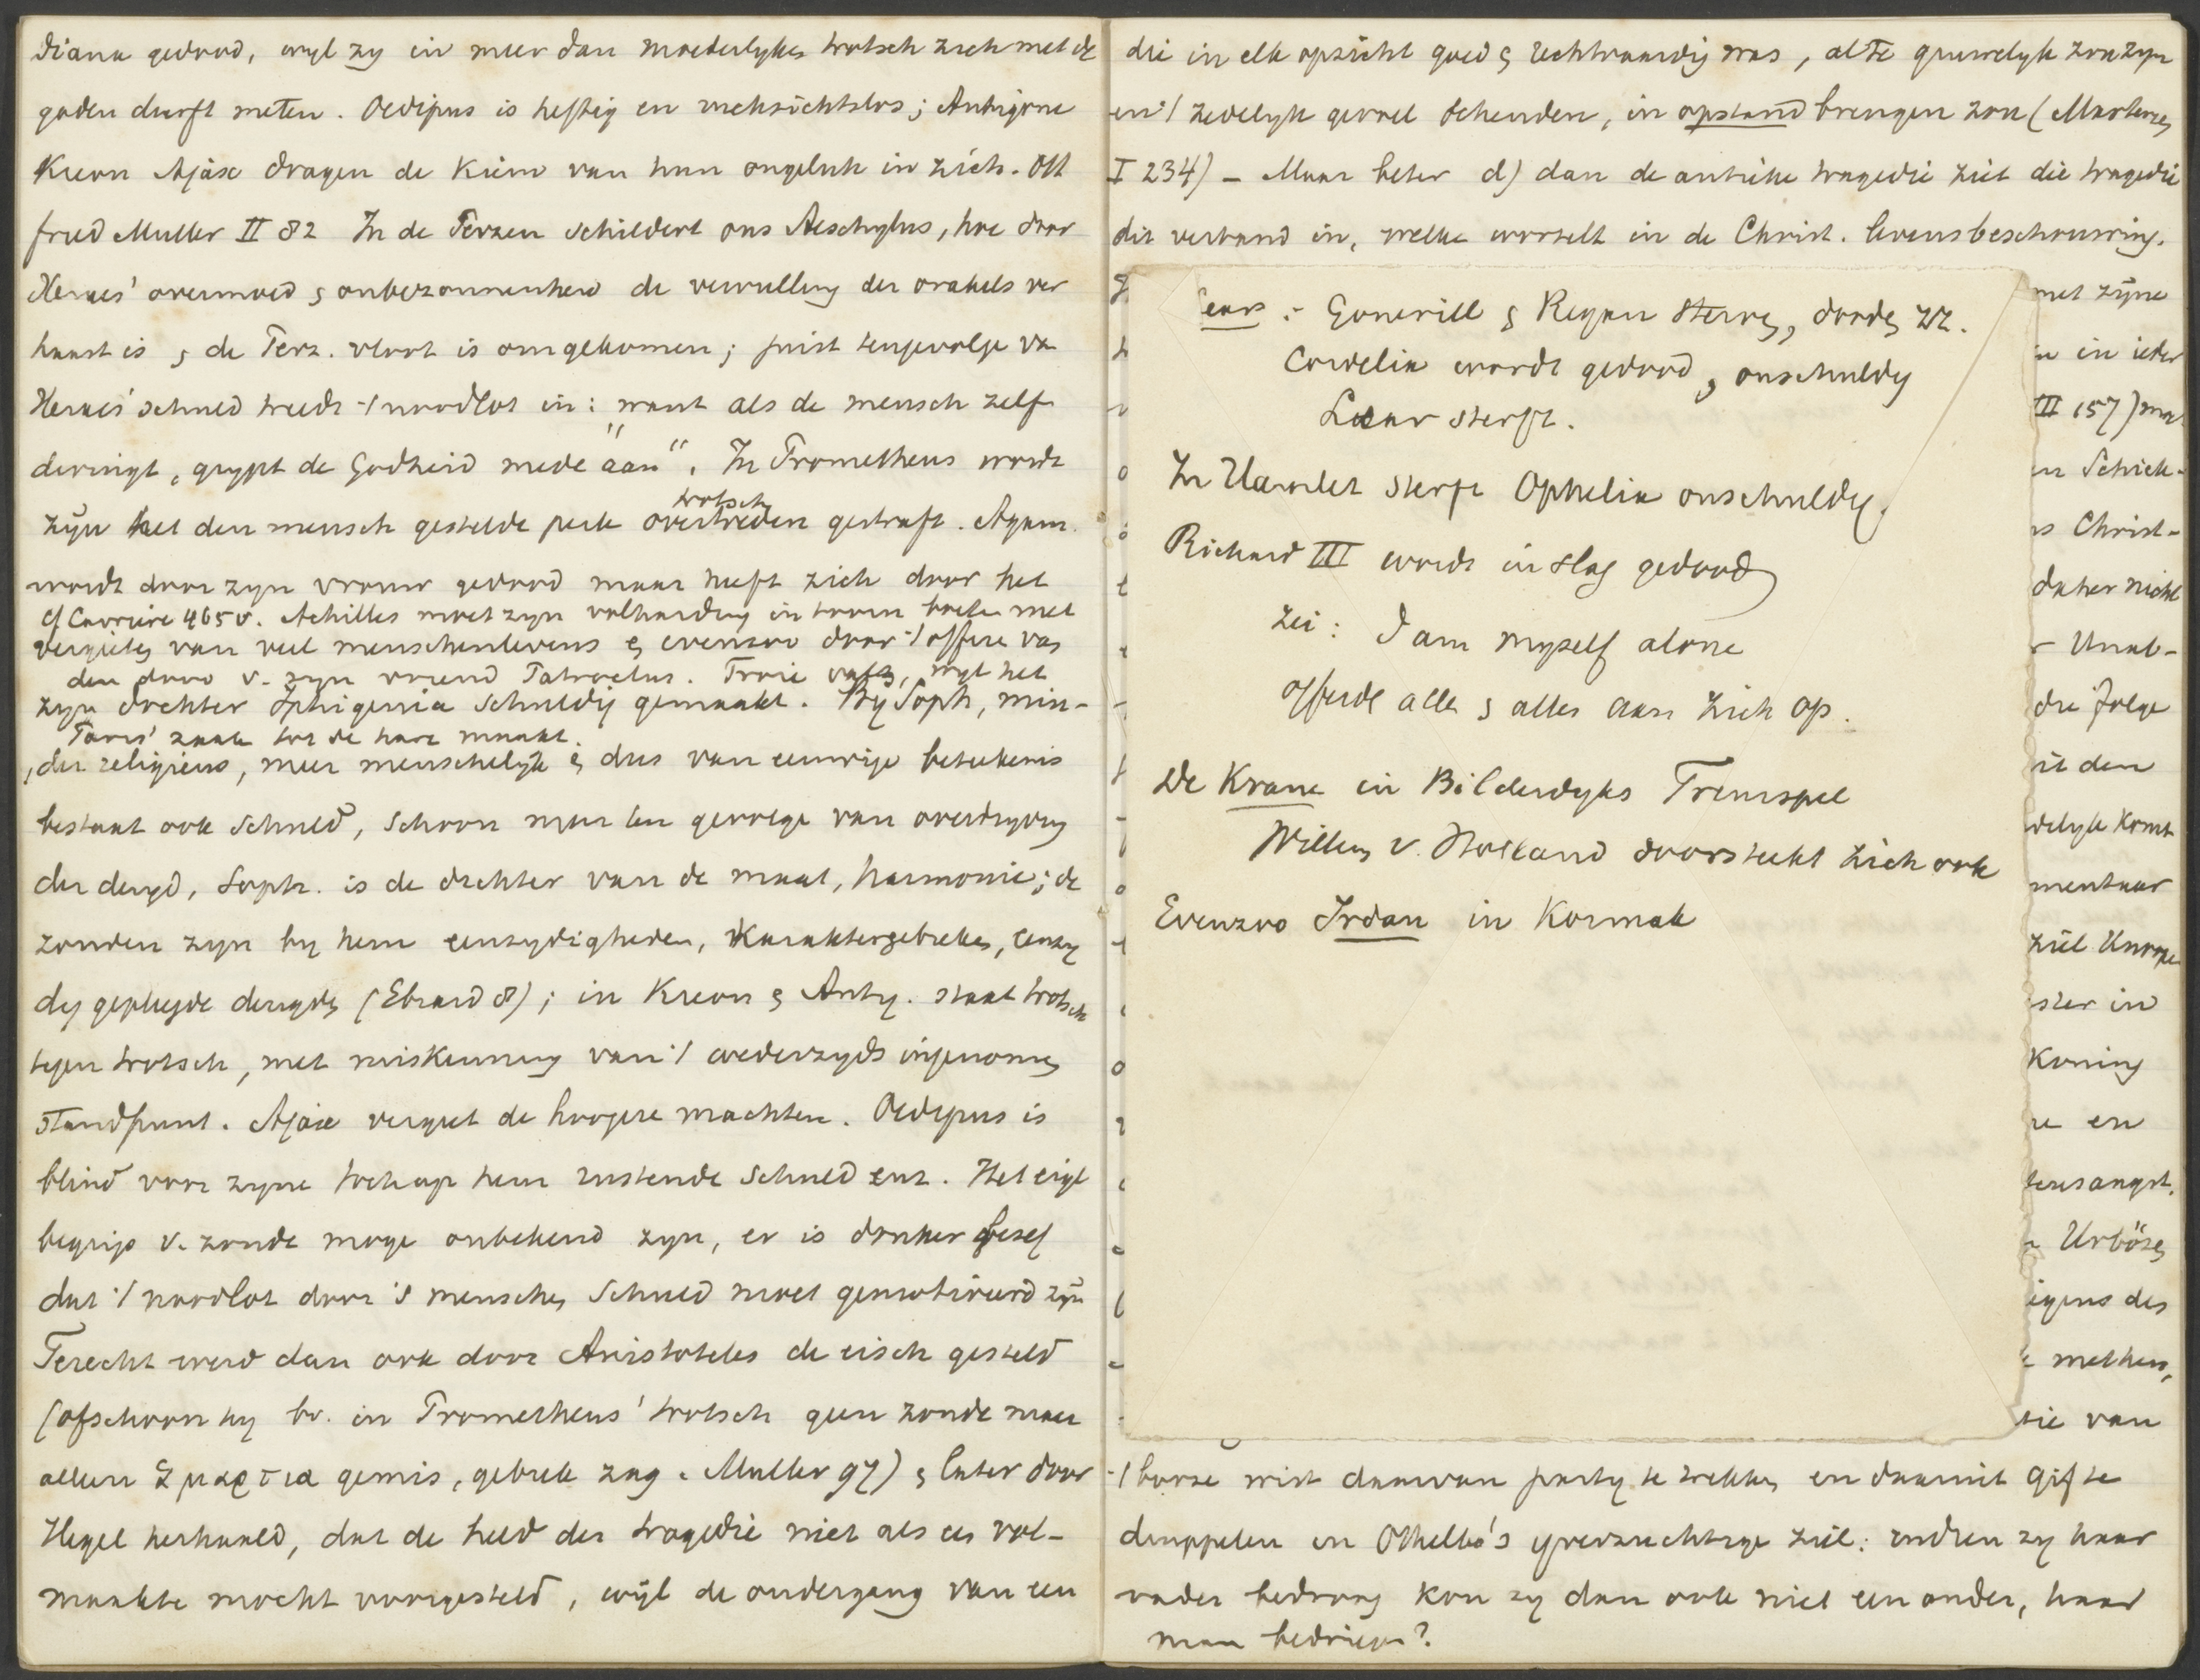 Diana gedood, wyl zy in meer dan moederlyken trotsch zich met de
goden durft meten. Oedipus is heftig en rücksichtslos; Antigone
Kreon Ajax dragen de kiem van hun ongeluk in zich. Ott
fried Muller II 82 In de Perzen schildert ons Aeschylus, hoe door
Xerxes' overmoed & onbezonnenheid de vervulling der orakels ver
haast is & de Perz. vloot is omgekomen; juist tengevolge va
Xerxes' schuld treedt 't noodlot in: want als de mensch zelf
dwingt, grypt de Godheid mede "aan". In Prometheus wordt
trotsch
zyn het den mensch gestelde perk overtreden gestraft. Agam.
wordt door zyn vrouw gedood maar heeft zich door het
cf Carriere 465 v. Achilles moet zyn volharding in toorn boeten met
vergieten van veel menschenlevens & evenzoo door 't offeren van
den dood v. zyn vriend Patroclus. Troie valt, wyl het
zyn dochter Iphigenia schuldig gemaakt. By Soph, min-
Paris' zaak tot de hare maakt.
der religieus, meer menschelyk & dus van eeuwige beteekenis
bestaat ook schuld, schoon maar ten gevolge van overdryving
der deugd, Soph. is de dichter van de maat, harmonie; de
zonden zyn by hem eenzydigheden, karaktergebreken, eenzy
dig gepleegde deugden (Ebrard 8); in Kreon & Antig. staat trotsch
tegen trotsch, met miskenning van 't wederzyds ingenomen
standpunt. Ajax vergeet de hoogere machten. Oedipus is
blind voor zyne toch op hem rustende schuld enz. Het eigl
begrip v. zonde moge onbekend zyn, er is donker besef
dat 't noodlot door 's menschen schuld moet gemotiveerd zyn
Terecht werd dan ook door Aristoteles de eisch gesteld
(ofschoon hy bv. in Prometheus' trotsch geen zonde maar
alleen ἁμαρτια gemis, gebrek zag. Muller 97) & later door
Hegel herhaald, dat de held der tragedie niet als een vol-
maakte mocht voorgesteld, wyl de ondergang van een
die in elk opzicht goed & rechtvaardig was, al te gruwelyk zou zyn
en 't zedelyk gevoel schenden, in opstand brengen zou (Martensen
I 234) - Maar beter d) dan de antieke tragedie ziet die tragedie
dit verband in, welke wortelt in de Christ. levensbeschouwing.
Lear: Goneril & Regan sterven, dooden zz.
Cordelia wordt gedood & onschuldig
Lear sterft.
In Hamlet sterft Ophelia onschuldig.
Richard III wordt in slag gedood
zei: I am myself alone
offerde alle & alles aan zich op.
De Krane in Bilderdyks Treurspel
Willem v. Holland doorsteekt zich ook
Evenzoo Irdan in Kormak
met zyne
in ieder
III 157)
Schick-
Christ-
daher nicht
Unab-
die folge
it den
delyk komt
mentaar
ziel
ster in
Koning
en
tensangst.
Urböses
igens des
metheus,
sie van
't booze wist daarvan party te trekken en daarmit gif te
druppelen in Othello's yverzuchtige ziel: indien zy haar
vader bedroog kon zy dan ook niet een ander, haar
man bedriegen?